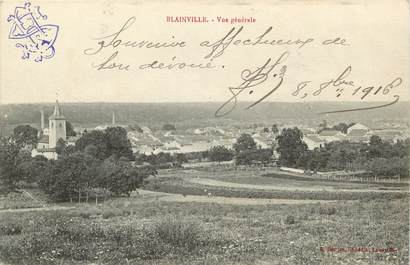 BLAINVILLE. - Vue générale
Souvenir affectueux de
ton dévoué.
8, 8bre 1916